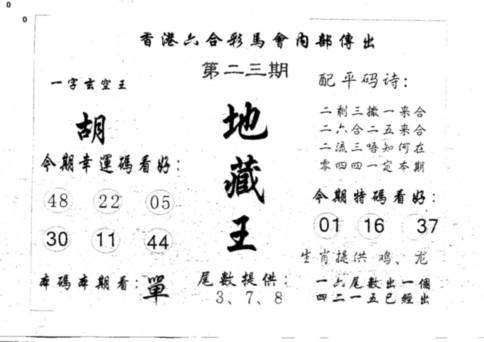 0
0
香港六合彩馬會內部傳出
第二三期
一字玄空王
胡
今期幸運碼看好：
48 22 05
30 11 44
本碼本期看：單
地藏王
尾數提供：
3、7、8
配平码诗：
二剩三撤一来合
二六合二五来合
二流三唔知何在
零四四一定本期
今期特碼看好：
01 16 37
生肖提供 鸡、龙
一六尾數出一個
四二一五已經出